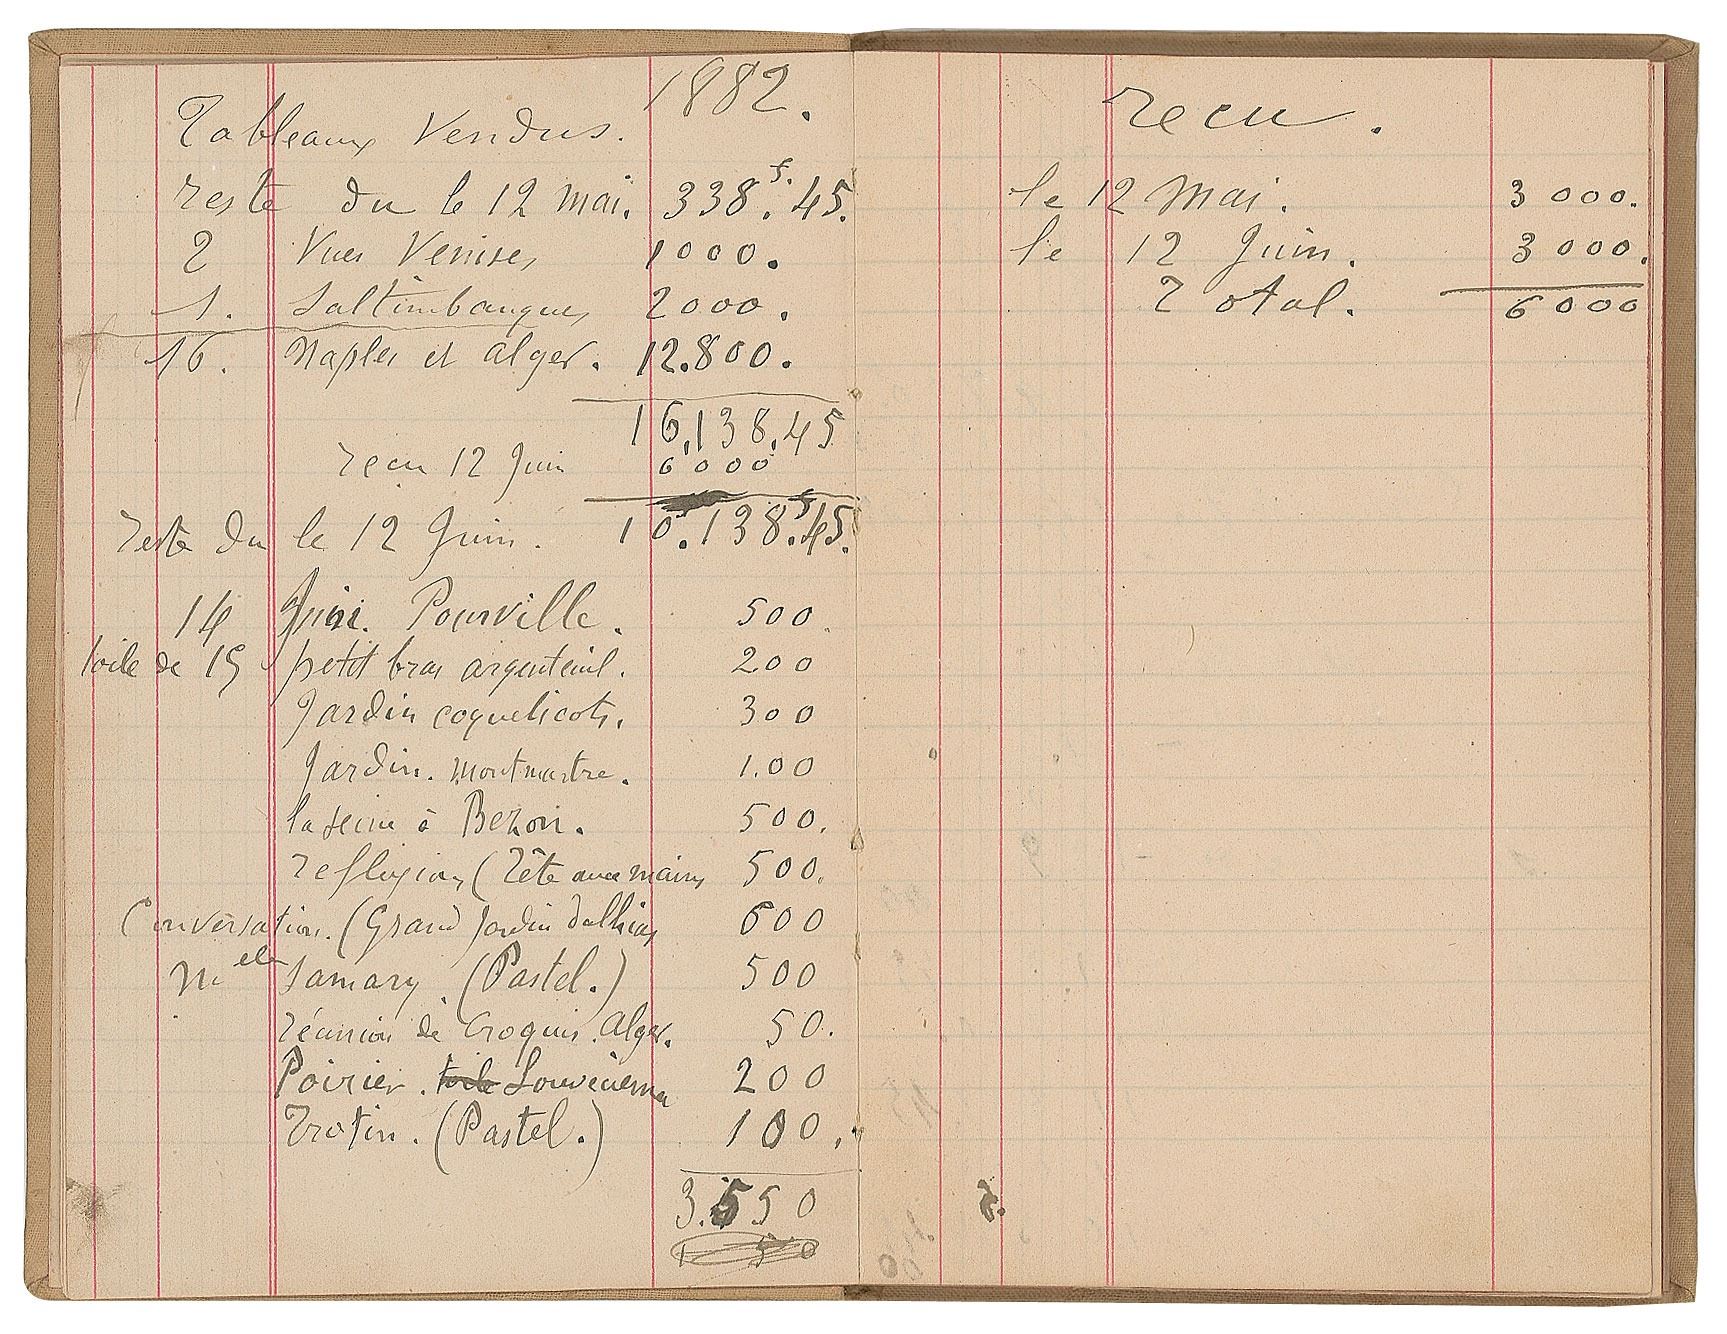 1882.
Tableaux Vendus.
reste du le 12 mai. 338 f. 45.
2 Vues Venise, 1000.
1. Saltimbanques 2000.
16. Naples et alger. 12.800.
16.138.45
recu 12 Juin 6000
reste du le 12 Juin. 10.138.f45.
14 Juin. Pourville. 500.
toile de 15 petit bras argenteuil. 200
Jardin coquelicots. 300
Jardin. Montmartre. 1.00
la seine à Bezon. 500.
reflexion (Tête avec mains 500.
Conversation. (Grand Jardin dalhias 600
Melle Samary. (Pastel.) 500
réunion de Croquis. alger. 50.
Poirier. toile 200
Trotin. (Pastel.) 100.
3.550
recu.
le 12 Mai. 3 000.
le 12 Juin. 3 000.
Total. 6 000